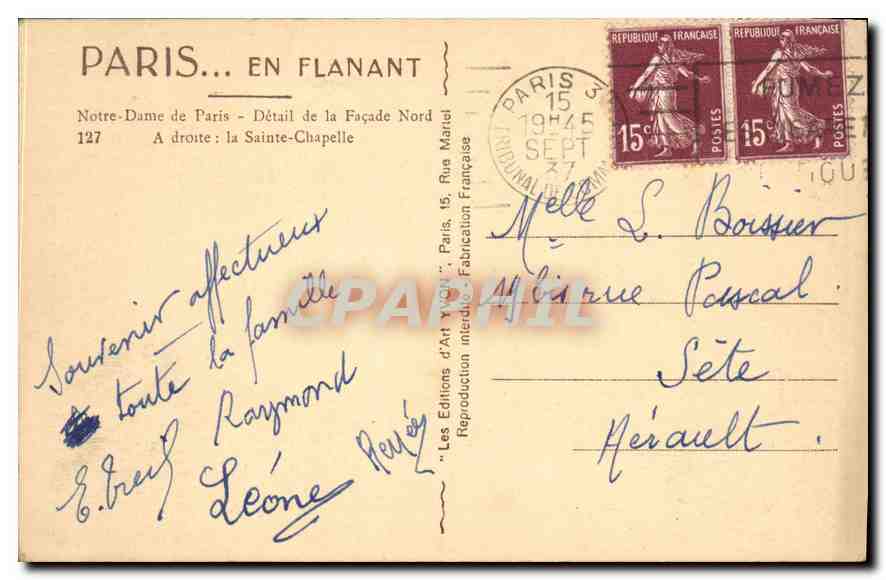 PARIS... EN FLANANT
Notre-Dame de Paris - Détail de la Façade Nord
127 A droite : la Sainte-Chapelle
Souvenir affectueux
toute la famille
Raymond
Léone
Renée
"Les Editions d'Art YVON", Paris, 15, Rue Martel
Reproduction interdite Fabrication Française
REPUBLIQUE FRANÇAISE
15c POSTES
REPUBLIQUE FRANÇAISE
15c POSTES
PARIS 3
15
19H45
SEPT
37
TRIBUNAL DE
FUMEZ
Melle L. Boissier
bis rue Pascal
Sète
Hérault.
CPAPHIL